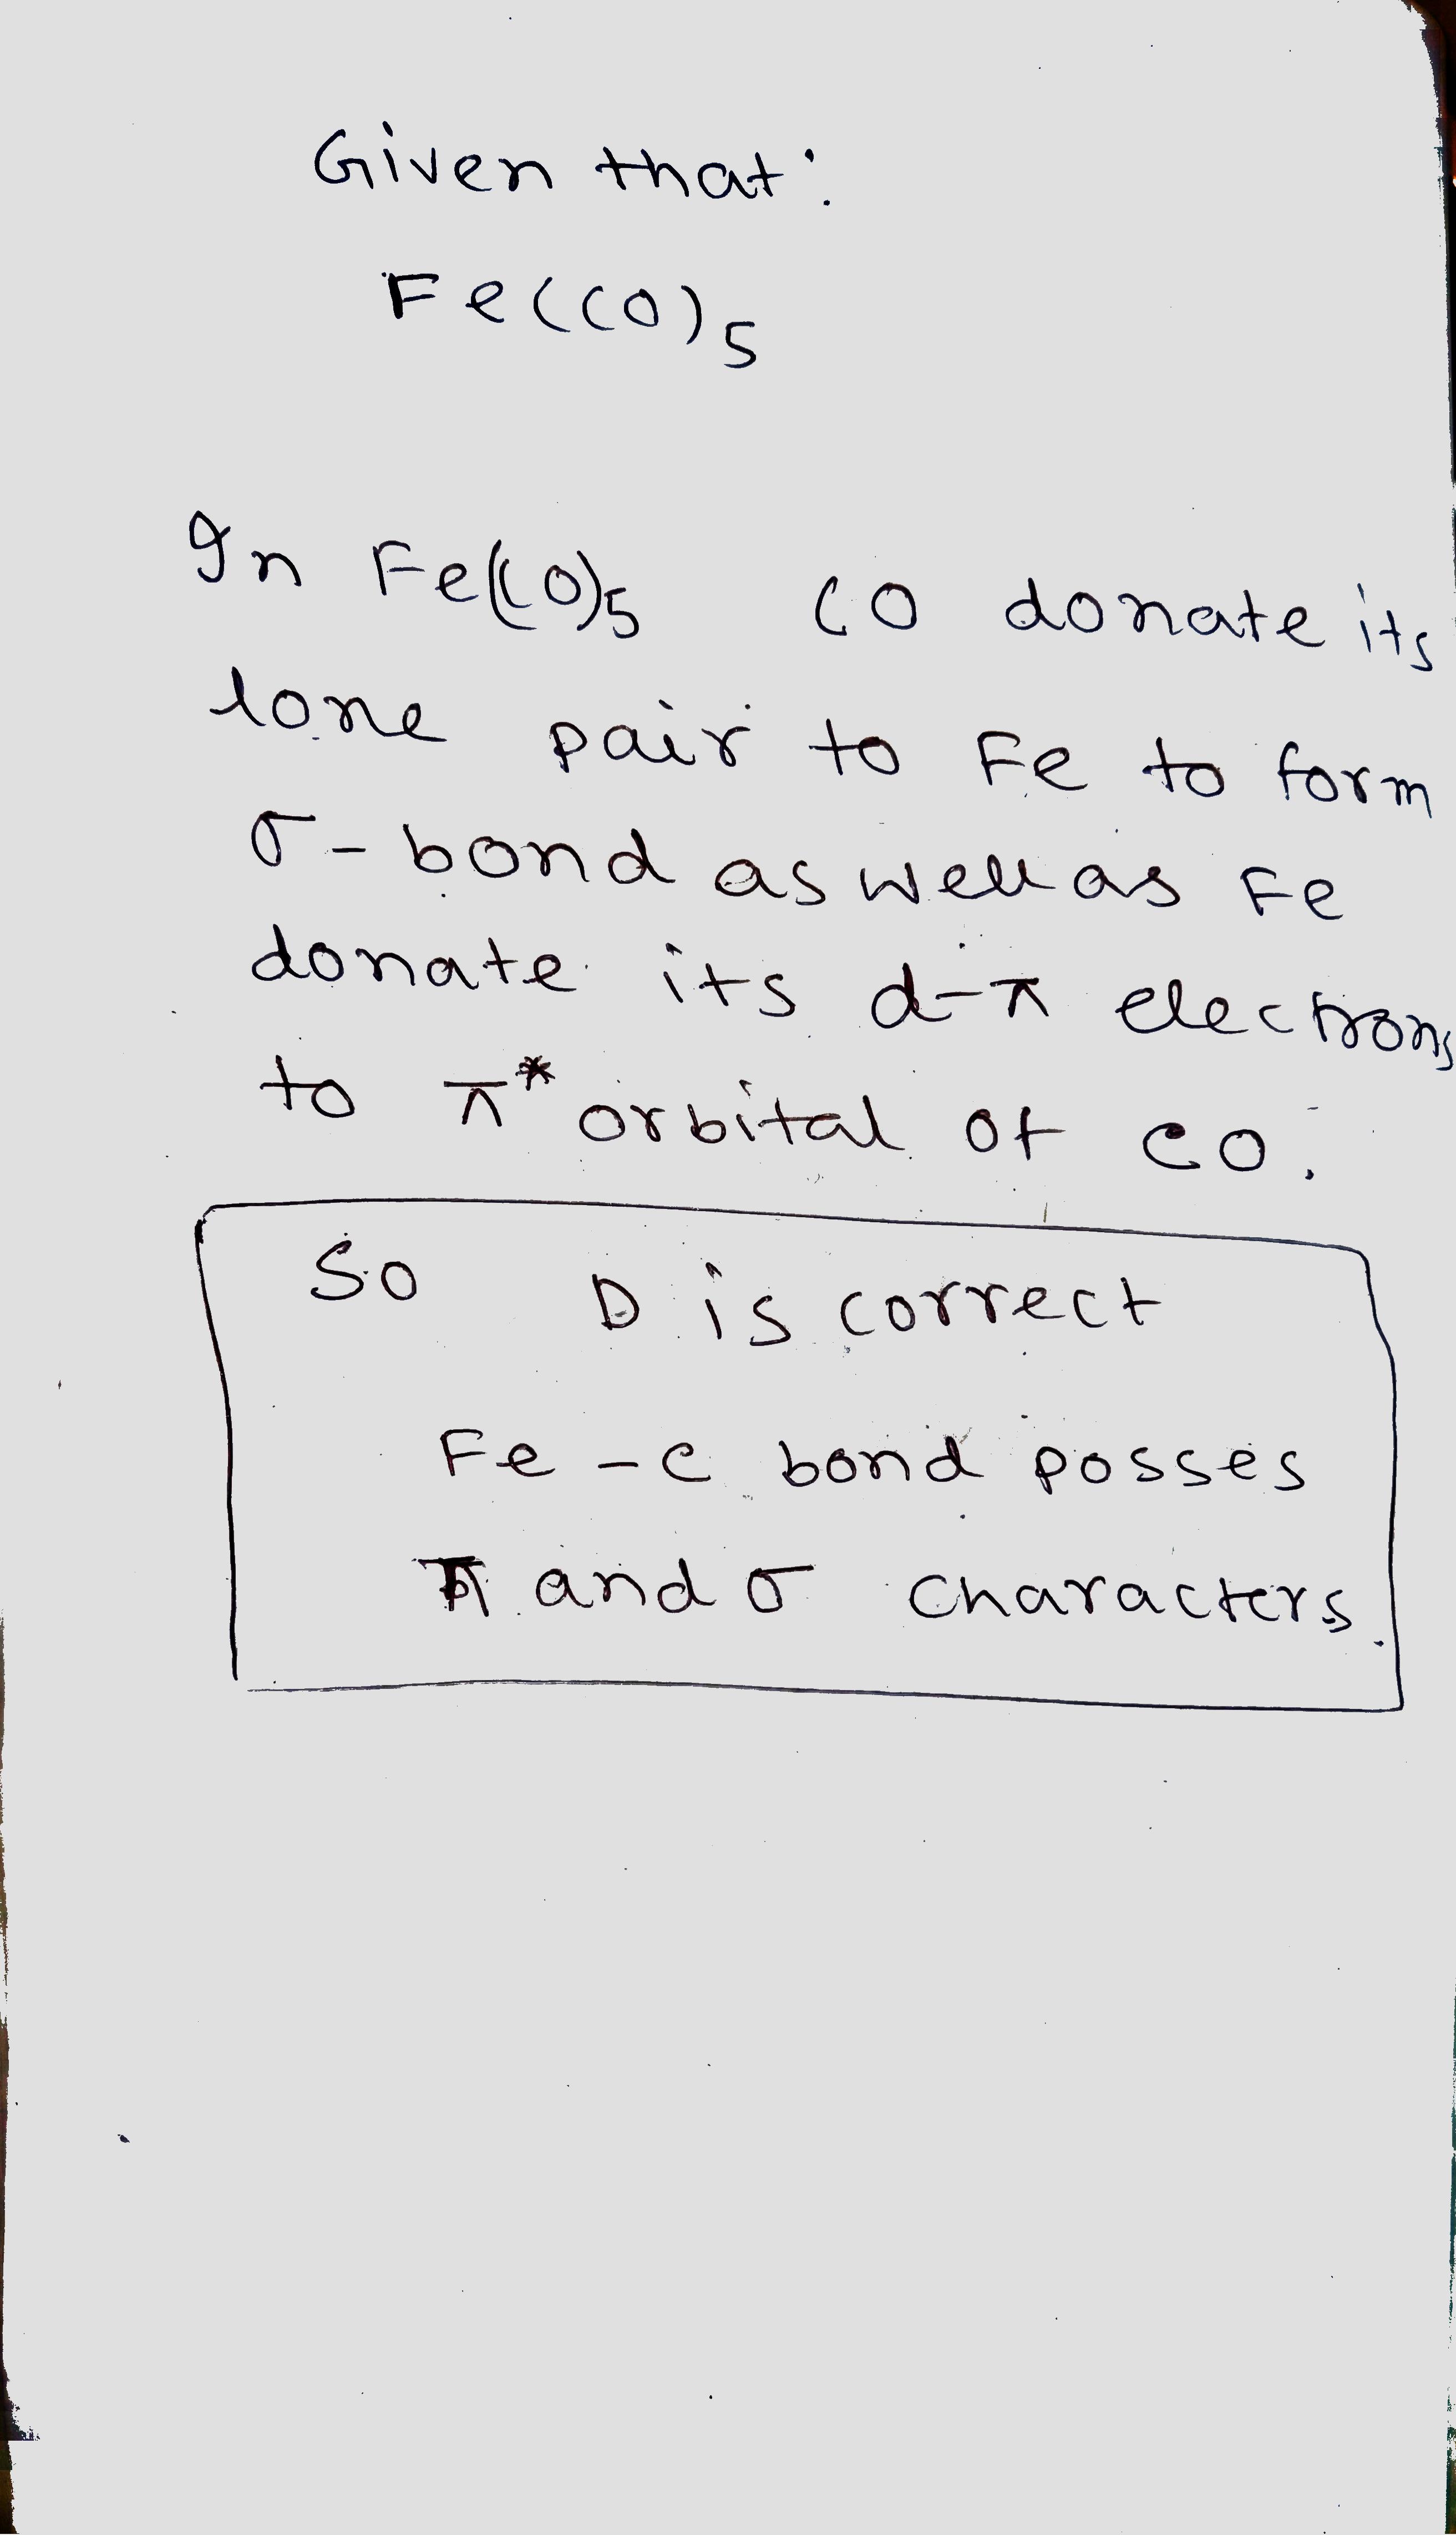 Given that:
Fe(CO)5
In Fe(CO)5 CO donate its
lone pair to Fe to form
σ-bond as well as Fe
donate its d-π electrons
to π* orbital of CO.
So D is correct
Fe-C bond posses
π and σ characters.